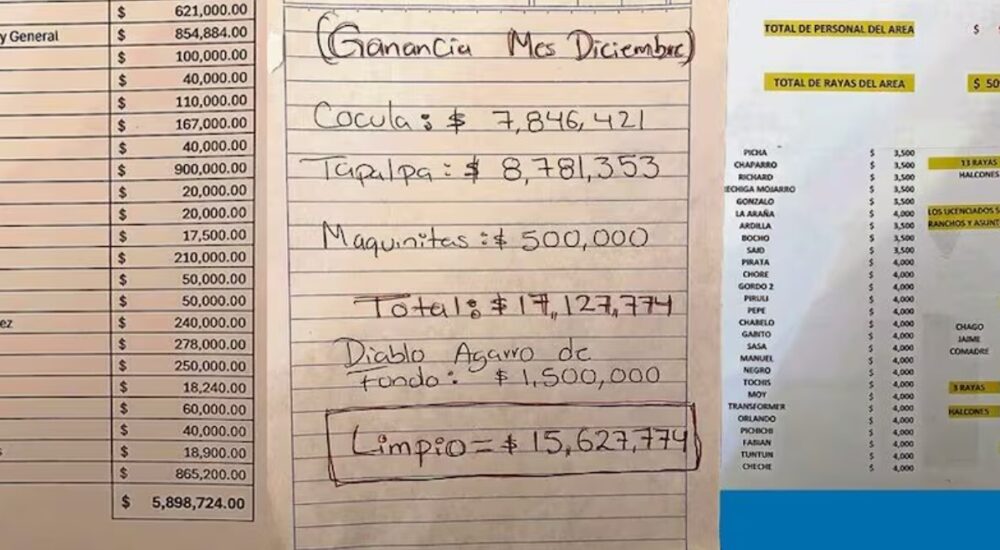 $ 621,000.00
y General $ 854,884.00
$ 100,000.00
$ 40,000.00
$ 110,000.00
$ 167,000.00
$ 40,000.00
$ 900,000.00
$ 20,000.00
$ 20,000.00
$ 17,500.00
$ 210,000.00
$ 50,000.00
$ 50,000.00
ez $ 240,000.00
$ 278,000.00
$ 250,000.00
$ 18,240.00
$ 60,000.00
$ 40,000.00
s $ 18,900.00
$ 865,200.00
$ 5,898,724.00
(Ganancia Mes Diciembre)
Cocula: $ 7,846,421
Tapalpa: $ 8,781,353
Maquinitas: $ 500,000
Total: $ 17,127,774
Diablo Agarro de
Fondo: $ 1,500,000
Limpio = $ 15,627,774
TOTAL DE PERSONAL DEL AREA $
TOTAL DE RAYAS DEL AREA $ 50
PICHA $ 3,500
CHAPARRO $ 3,500
RICHARD $ 3,500
ECHIGA MOJARRO $ 3,500
GONZALO $ 3,500
LA ARAÑA $ 4,000
ARDILLA $ 3,500
BOCHO $ 3,500
SAID $ 3,500
PIRATA $ 4,000
CHORE $ 4,000
GORDO 2 $ 4,000
PIRULI $ 4,000
PEPE $ 4,000
CHABELO $ 4,000
GABITO $ 4,000
SASA $ 4,000
MANUEL $ 4,000
NEGRO $ 4,000
TOCHIS $ 4,000
MOY $ 4,000
TRANSFORMER $ 4,000
ORLANDO $ 4,000
PICHICHI $ 4,000
FABIAN $ 4,000
TUNTUN $ 4,000
CHECHE $ 4,000
13 RAYAS
HALCONES
LOS LICENCIADOS
RANCHOS Y ASUNT
CHAGO
JAIME
COMADRE
3 RAYAS
HALCONES